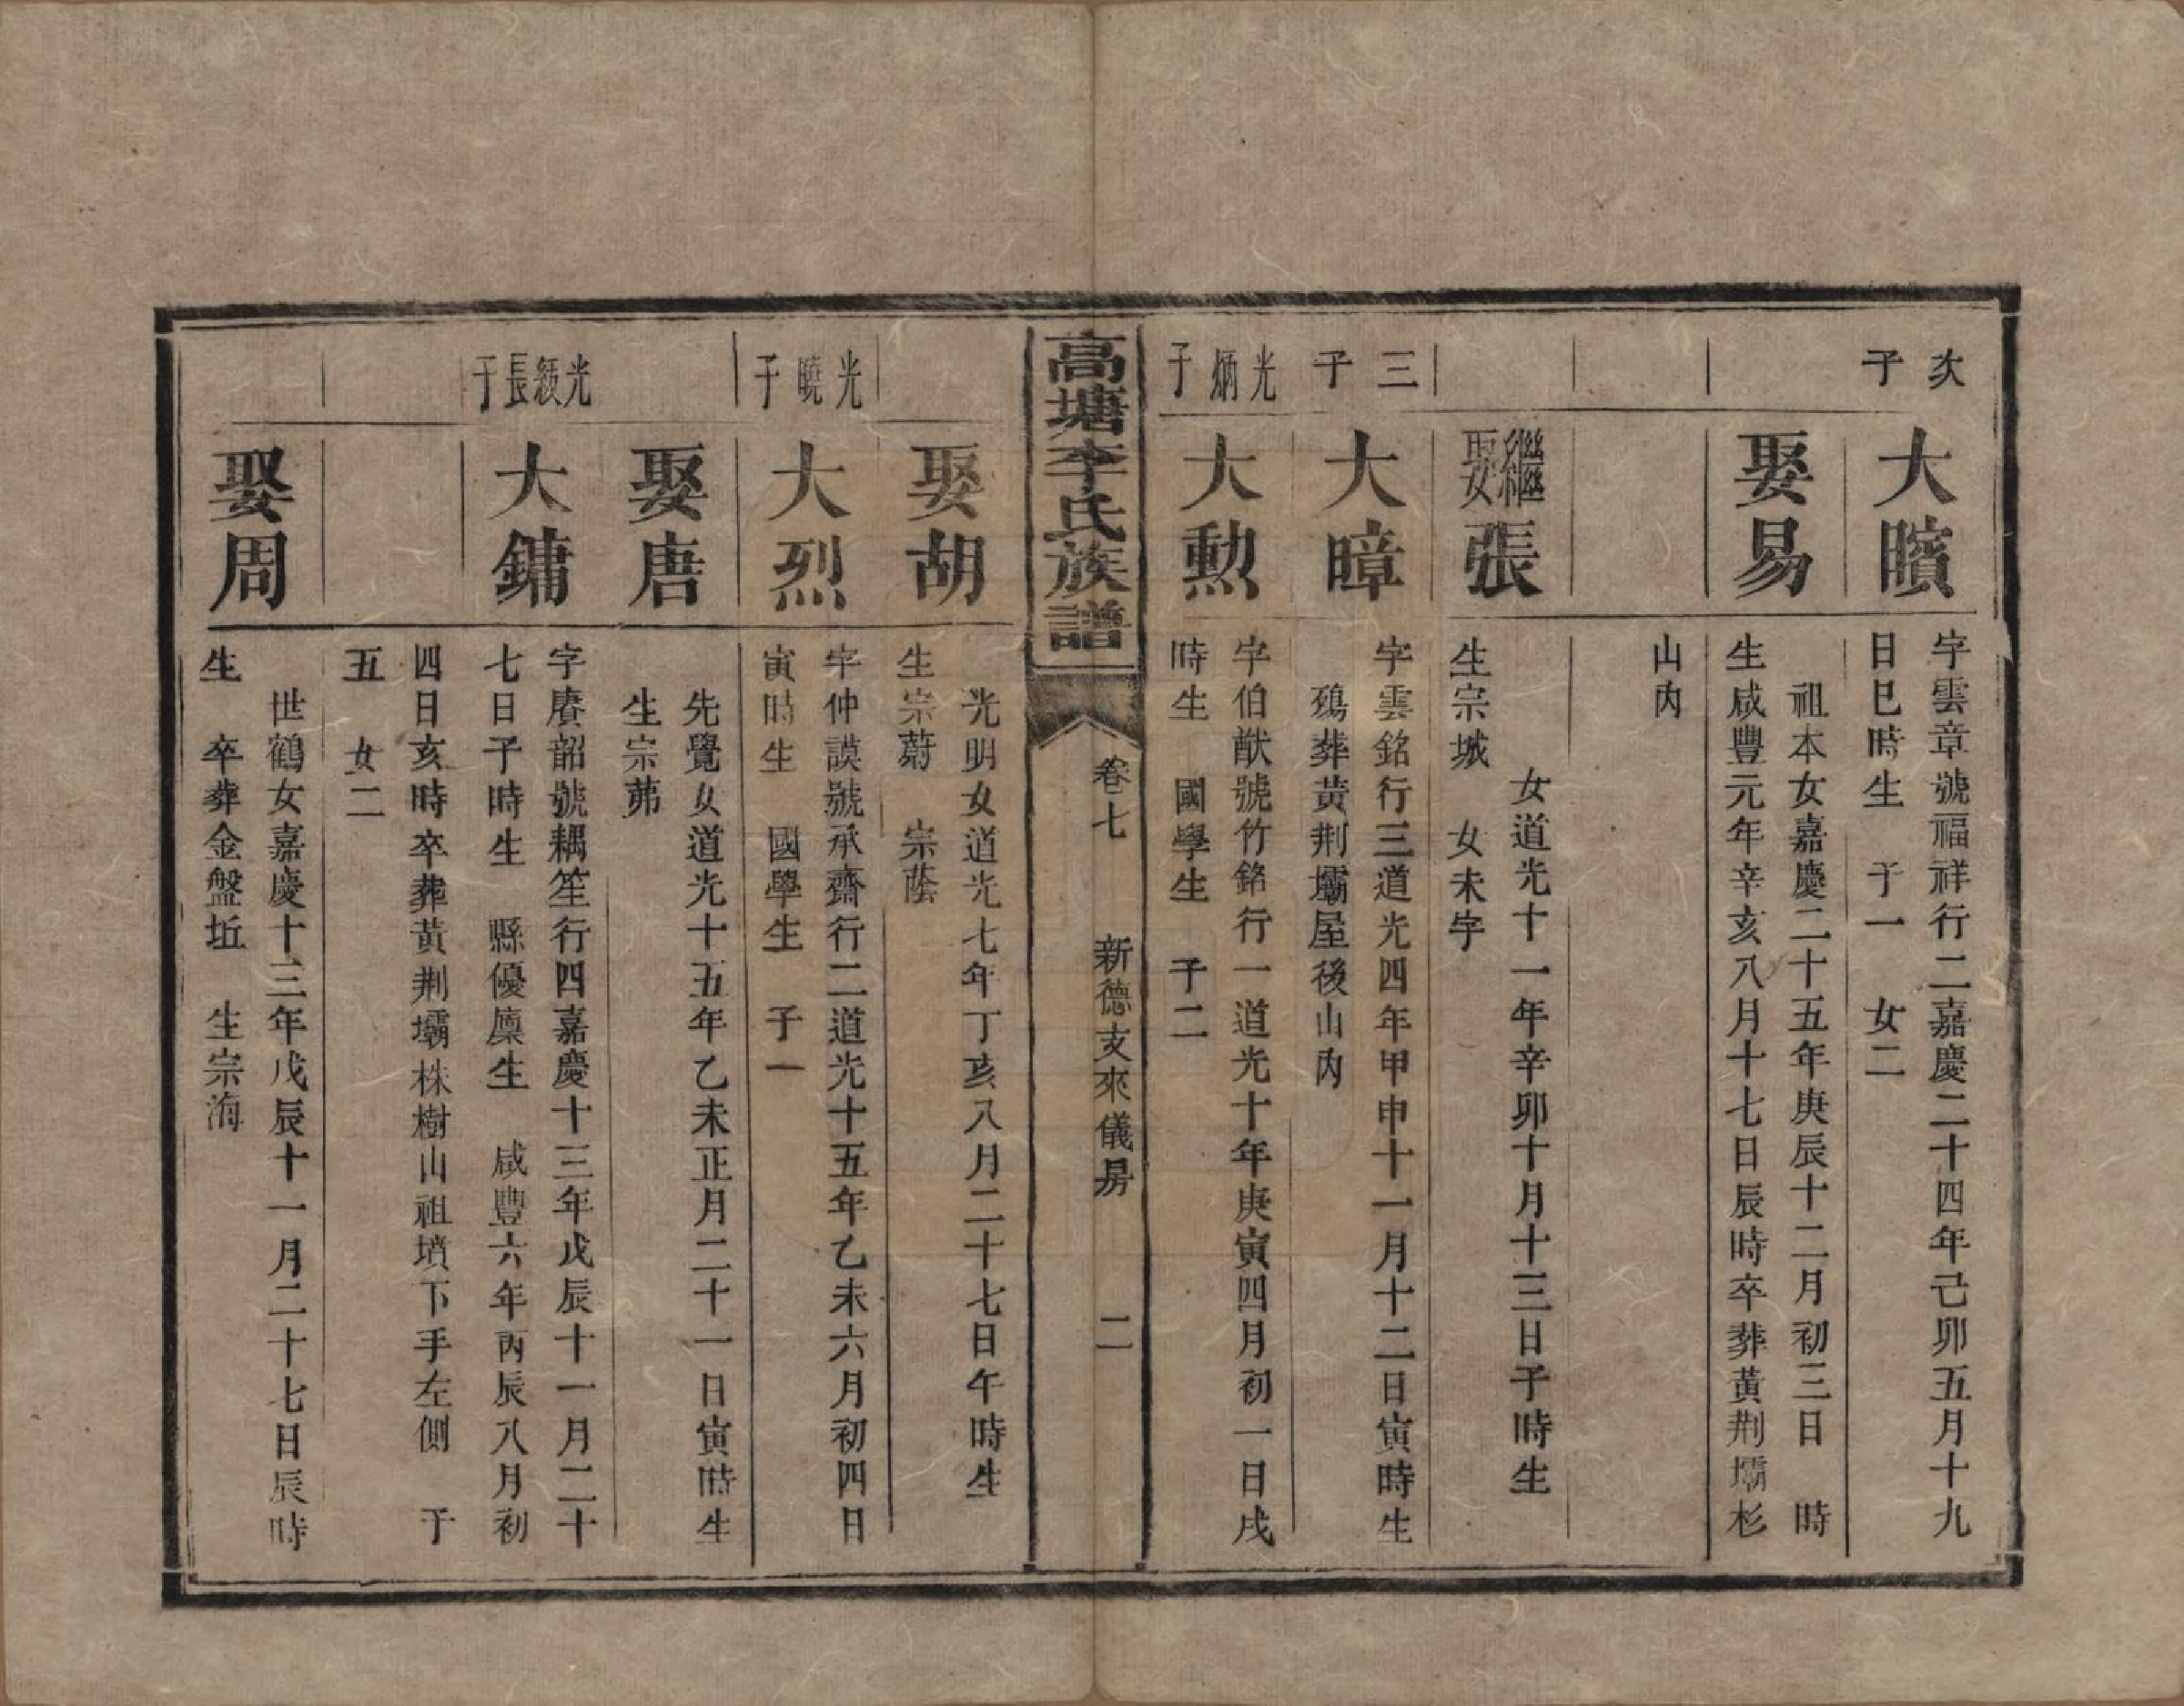 次子
大矌
字雲章號福祥行二嘉慶二十四年己卯五月十九
日巳時生 子一 女二
娶易
祖本女嘉慶二十五年庚辰十二月初三日 時
生咸豐元年辛亥八月十七日辰時卒葬黃荆壩杉
山內
繼娶張
女道光十一年辛卯十月十三日子時生
生宗城 女未字
三子
大暲
字雲銘行三道光四年甲申十一月十二日寅時生
殤葬黃荆壩屋後山內
光炳子
大勲
字伯猷號竹銘行一道光十年庚寅四月初一日戌
時生 國學生 子二
高塘李氏族譜
卷七 新德支來儀房 二
娶胡
光明女道光七年丁亥八月二十七日午時生
生宗蔚 宗蔭
光曉子
大烈
字仲謨號承齋行二道光十五年乙未六月初四日
寅時生 國學生 子一
娶唐
先覺女道光十五年乙未正月二十一日寅時生
生宗茀
光綬長子
大鏞
字賡韶號耦笙行四嘉慶十三年戊辰十一月二十
七日子時生 縣優廩生 咸豐六年丙辰八月初
四日亥時卒葬黃荆壩株樹山祖墳下手左側 子
五 女二
娶周
世鶴女嘉慶十三年戊辰十一月二十七日辰時
生 卒葬金盤坵 生宗海